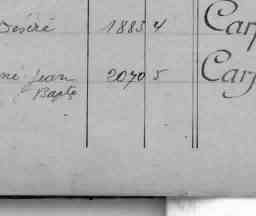 Désiré 1885 4 Carp
né Jean 2070 5 Carp
Bapte